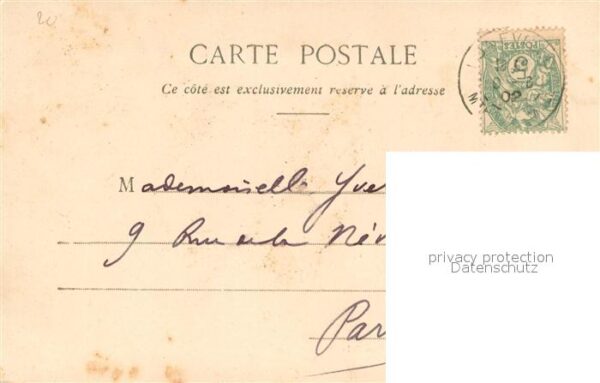 20
CARTE POSTALE
Ce côté est exclusivement réservé à l'adresse
Mademoiselle Yve
9 Rue de la Név
Par
privacy protection
Datenschutz